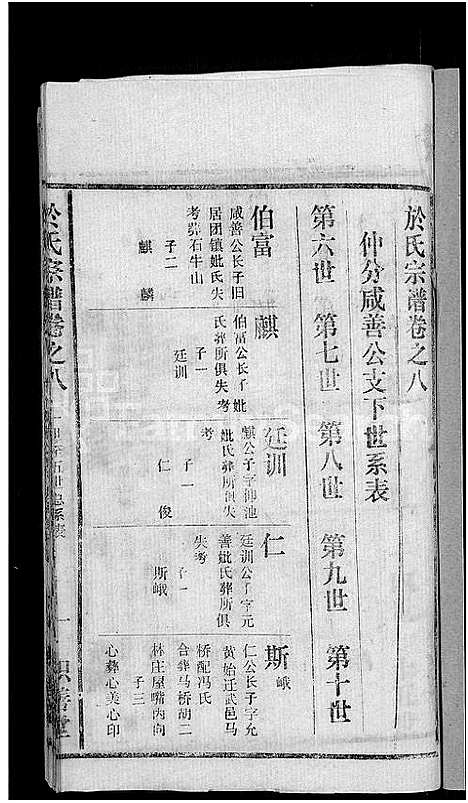 於氏宗谱卷之八
仲分咸善公支下世系表
第六世 第七世 第八世 第九世 第十世
伯富
咸善公长子旧
居团镇妣氏失
考葬石牛山
子二
麒 麟
麒
伯富公长子妣
氏葬所俱失考
子一
廷训
廷训
麒公子字仰池
妣氏葬所俱失
考
子一
仁 俊
仁
廷训公子字元
善妣氏葬所俱
失考
子一
斯峨
斯峨
仁公长子字允
黄始迁武邑马
桥配冯氏
合葬马桥胡二
林庄屋嘴丙向
子三
心彝 心美 心印
於氏宗谱卷之八
世系表
一
积善堂